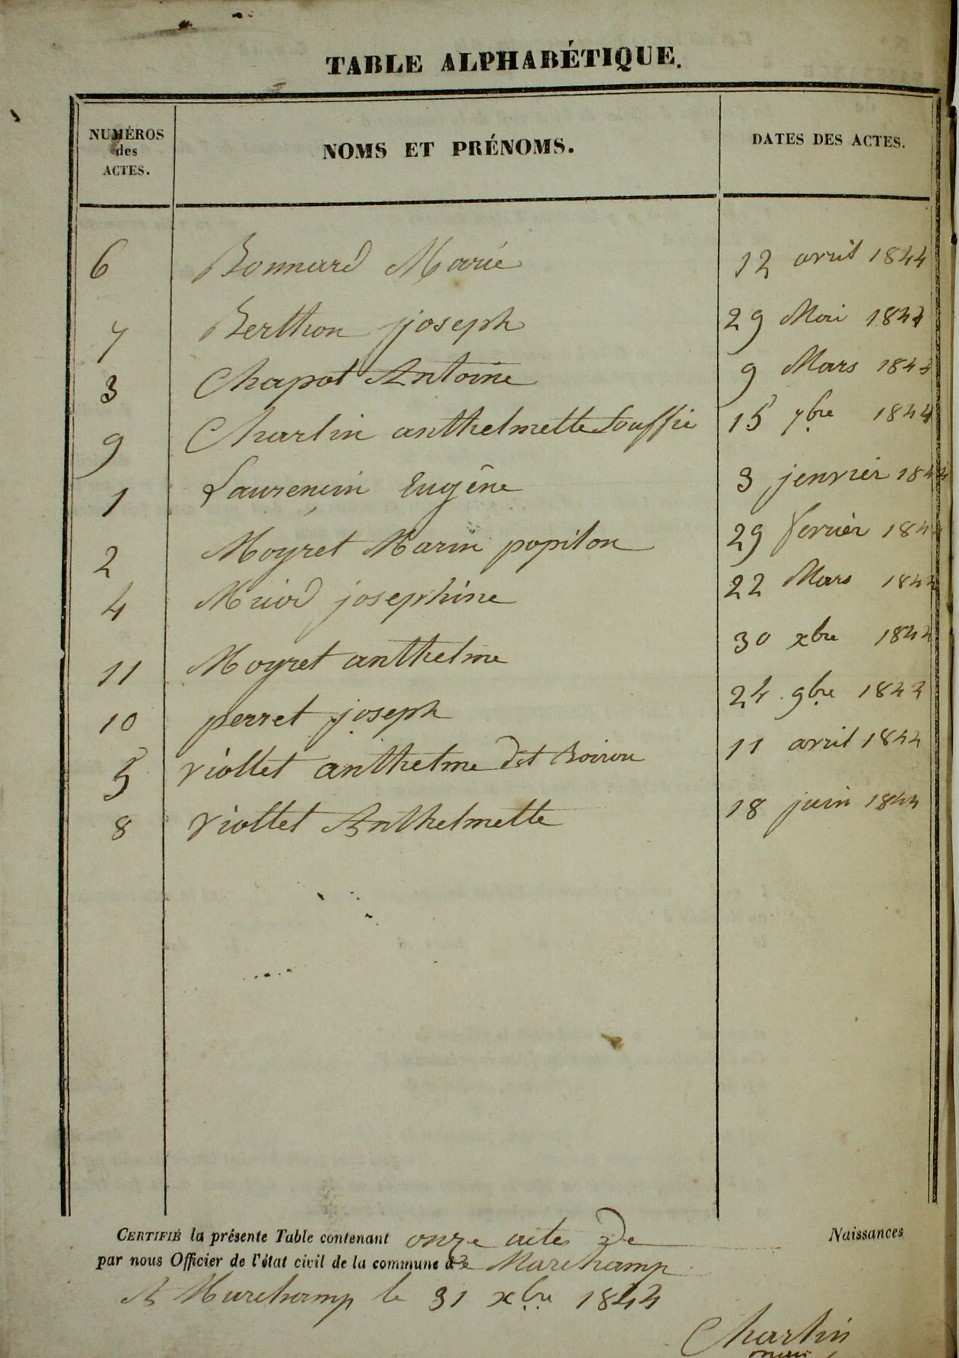 TABLE ALPHABÉTIQUE.
NUMÉROS des ACTES. NOMS ET PRÉNOMS. DATES DES ACTES.
6 Bonnard Marie 12 avril 1844
7 Berthon joseph 29 Mai 1844
3 Chapot Antoine 9 Mars 1844
9 Charlin anthelmette Souffie 15 7bre 1844
1 Laurencin Eugêne 3 jenvrier 1844
2 Moyret Marin papilon 29 fevrier 1844
4 josephine 22 Mars 1844
11 Moyret anthelme 30 xbre 1844
10 perret joseph 24 9bre 1844
5 Viollet anthelme dit Boirou 11 avril 1844
8 Viollet Anthelmette 18 juin 1844
CERTIFIÉ la présente Table contenant onze actes de Naissances
par nous Officier de l'état civil de la commune de Marchamp
A Marchamp le 31 xbre 1844
Charlin
maire